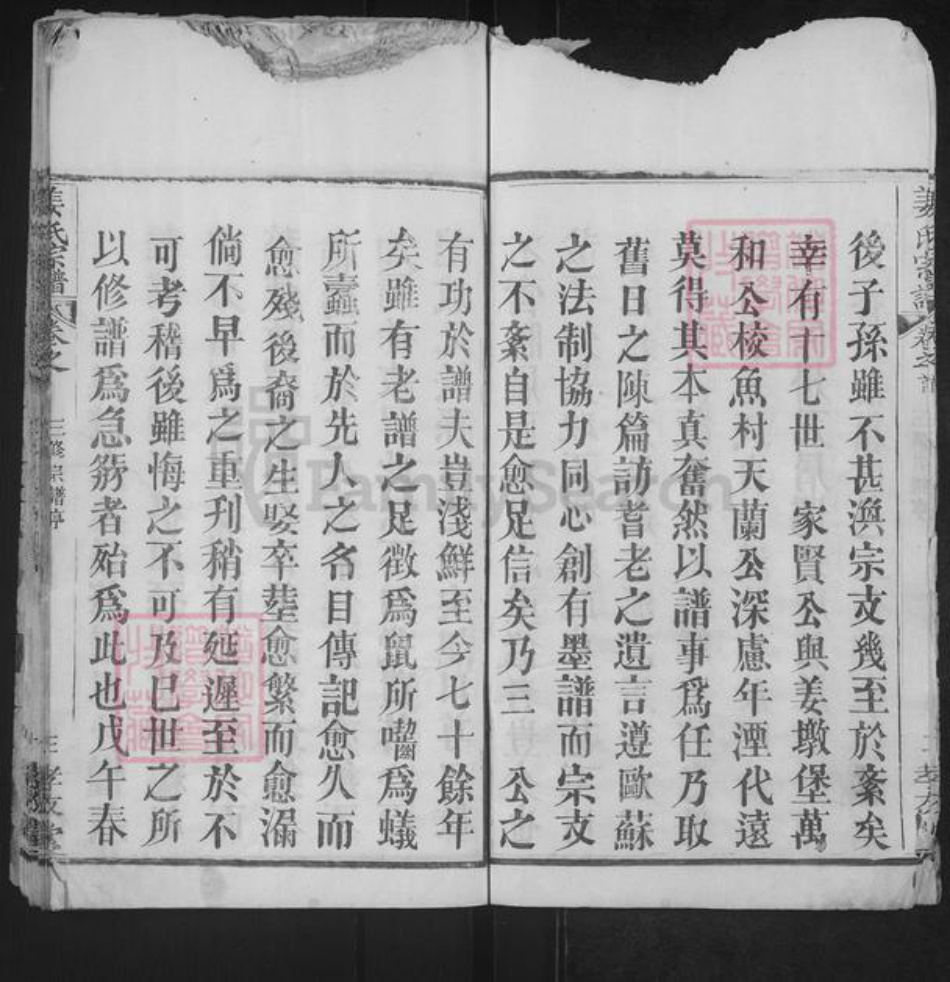 後子孫雖不甚渙宗支幾至於紊矣
幸有十七世　家賢公與姜墩堡萬
和公校魚村天蘭公深慮年湮代遠
莫得其本真奮然以譜事爲任乃取
舊日之陳篇訪耆老之遺言遵歐蘇
之法制協力同心創有墨譜而宗支
之不紊自是愈足信矣乃三　公之
有功於譜夫豈淺鮮至今七十餘年
矣雖有老譜之足徵爲鼠所嚙爲蟻
所蠹而於先人之名目傳記愈久而
愈殘後裔之生娶卒塟愈繁而愈漏
倘不早爲之重刋稍有延遲至於不
可考稽後雖悔之不可及已世之所
以修譜爲急務者殆爲此也戊午春
姜氏宗譜
卷之
三修宗譜
三
孝友堂
FamilySearch